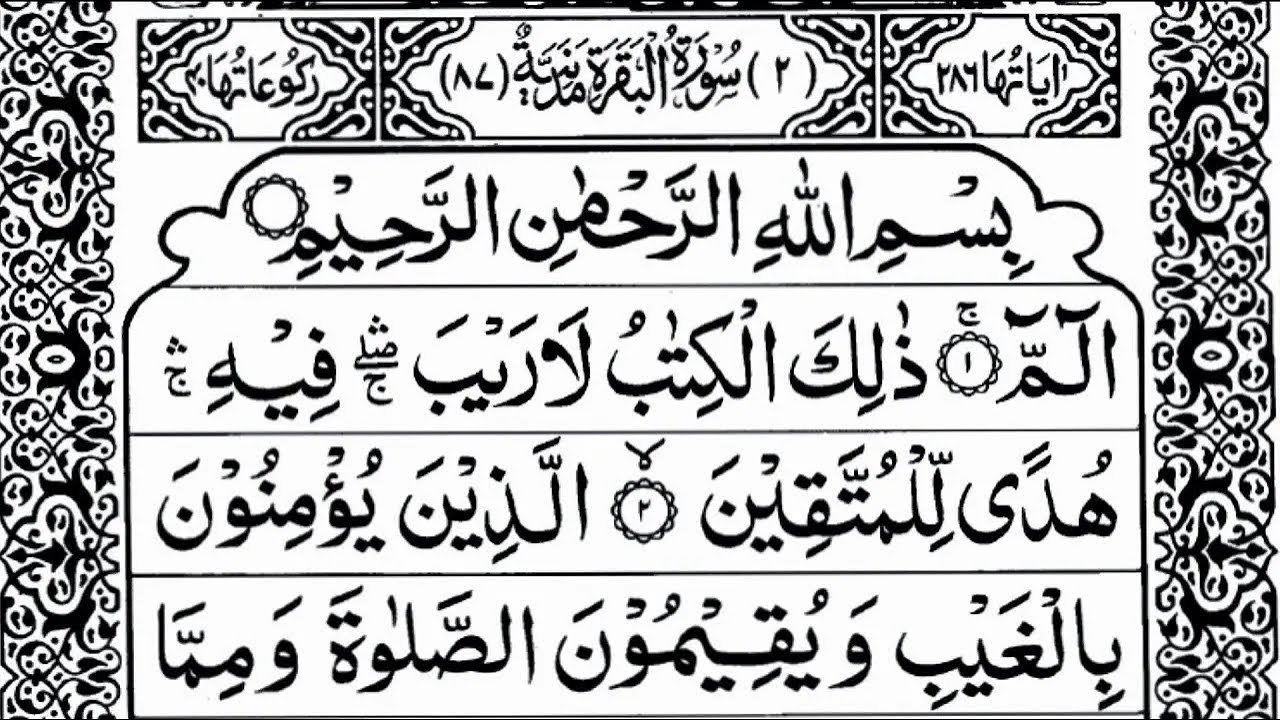 اٰيَاتُهَا ٢٨٦ (٢) سُوْرَةُ الْبَقَرَةِ مَدَنِيَّةٌ (٨٧) رُكُوْعَاتُهَا ٤٠
بِسْمِ اللّٰهِ الرَّحْمٰنِ الرَّحِيْمِ
الٓمّٓ ۚ‏ ﴿١﴾ ذٰلِكَ الْكِتٰبُ لَا رَيْبَ ۛۖۚ فِيْهِ ۛۚ
هُدًى لِّلْمُتَّقِيْنَ ۙ‏ ﴿٢﴾ الَّذِيْنَ يُؤْمِنُوْنَ
بِالْغَيْبِ وَ يُقِيْمُوْنَ الصَّلٰوةَ وَ مِمَّا